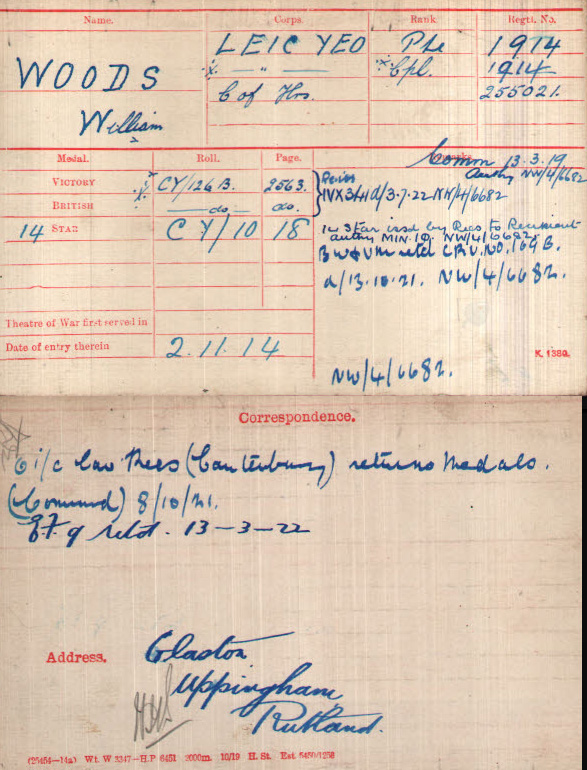 Name. Corps. Rank. Regtl. No.
WOODS
William
LEIC YEO Pte 1914
—"— Cpl. 1914
C of Hrs. 255021.
Medal. Roll. Page.
VICTORY CY/126B. 2563.
BRITISH —do.— do.
14 STAR CY/10 18
Theatre of War first served in
Date of entry therein 2.11.14
Comm 13.3.19
Authy NW/4/6682
Reiss
IVX 341 d/3.7.22 NW/4/6682
14 Star issd by Recs to Recipient
authy MIN. 10. NW/4/6682.
BW & VM retd CRV. NO. 169B.
d/13.10.21. NW/4/6682.
NW/4/6682.
K. 1380.
Correspondence.
O i/c Cav Recs (Canterbury) returns Medals.
8/10/21.
13-3-22
Address. Glaston
Uppingham
Rutland.
(25454—14a) Wt. W 3347—H.P. 6451 2000m. 10/19 H. St. Est. 5450/1258